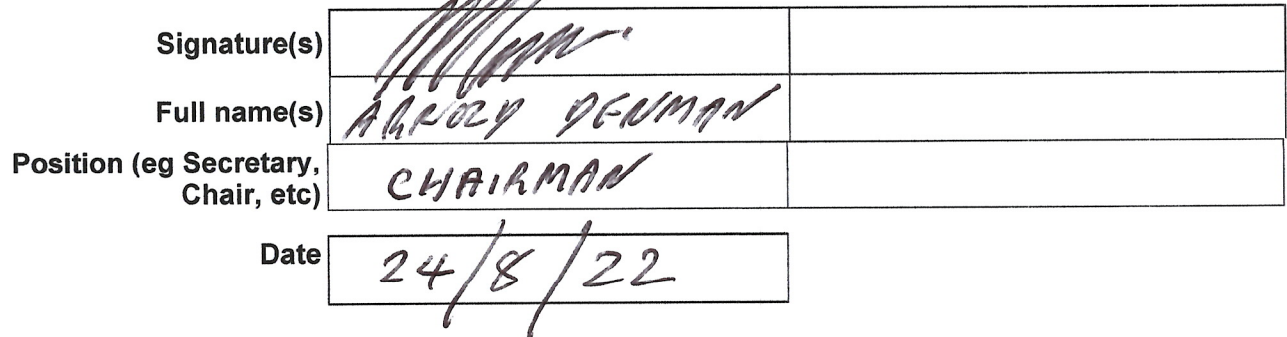 Signature(s)
Full name(s) ARNOLD DENMAN
Position (eg Secretary,
Chair, etc) CHAIRMAN
Date 24/8/22